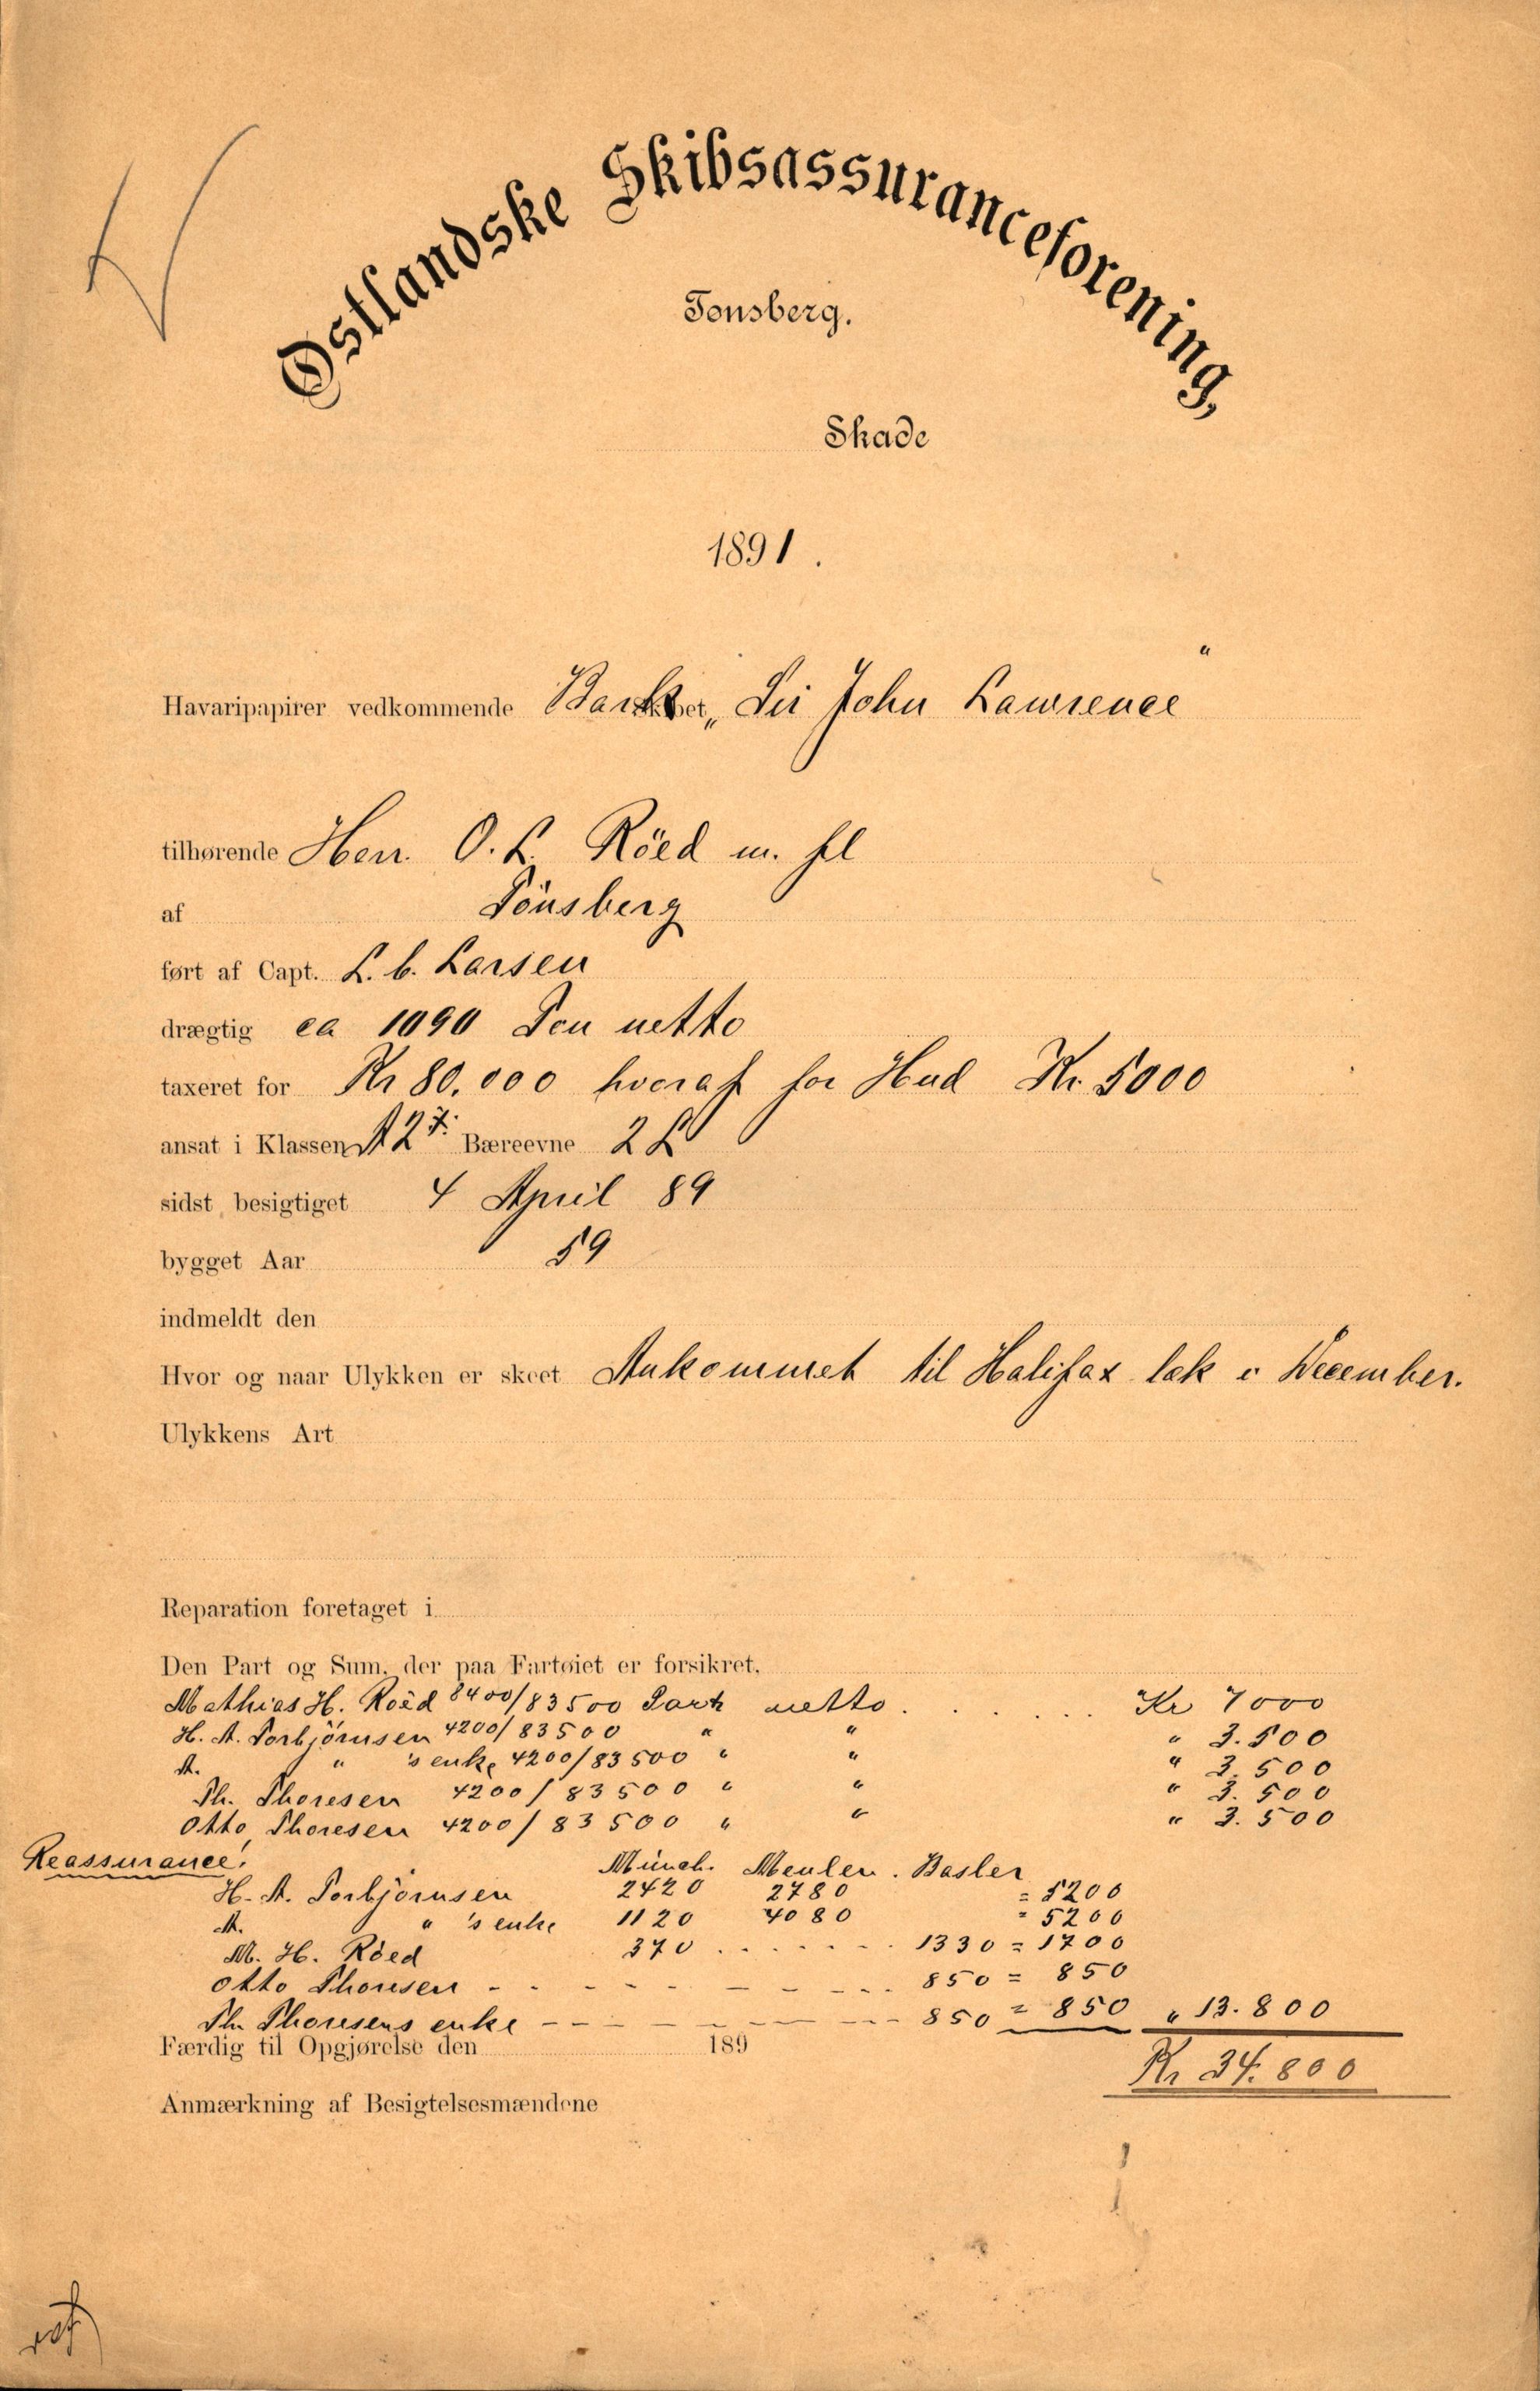 Østlandske Skibsassuranceforening,
Tønsberg.
Skade
1891.
Havaripapirer vedkommende Barkskibet „Sir John Lawrence"
tilhørende Herr. O. L. Röed m. fl
af Tönsberg
ført af Capt. L. C. Larsen
drægtig ca 1090 Ton netto
taxeret for Kr 80.000 hvoraf for Hud Kr. 5000
ansat i Klassen A 2 Bæreevne 2 L
sidst besigtiget 4 April 89
bygget Aar 59
indmeldt den
Hvor og naar Ulykken er skeet Ankommet til Halifax læk i December.
Ulykkens Art
Reparation foretaget i
Den Part og Sum, der paa Fartøiet er forsikret,
Mathias H. Roëd 8400/83500 Part netto . . . . . . Kr 7000
H. A. Torbjörnsen 4200/83500 " " " 3.500
A. " 's enke 4200/83500 " " " 3.500
Th. Thoresen 4200/83500 " " " 3.500
Otto Thoresen 4200/83500 " " " 3.500
Reassurance.
Münch. Meulen. Basler
H. A. Torbjörnsen 2420 2780 = 5200
A. " 's enke 1120 4080 = 5200
M. H. Röed 370 . . . . . . . 1330 = 1700
Otto Thoresen - - - - - - - - 850 = 850
Th Thoresens enke - - - - - - - - 850 = 850 " 13.800
Færdig til Opgjørelse den 189
Kr 34.800
Anmærkning af Besigtelsesmændene